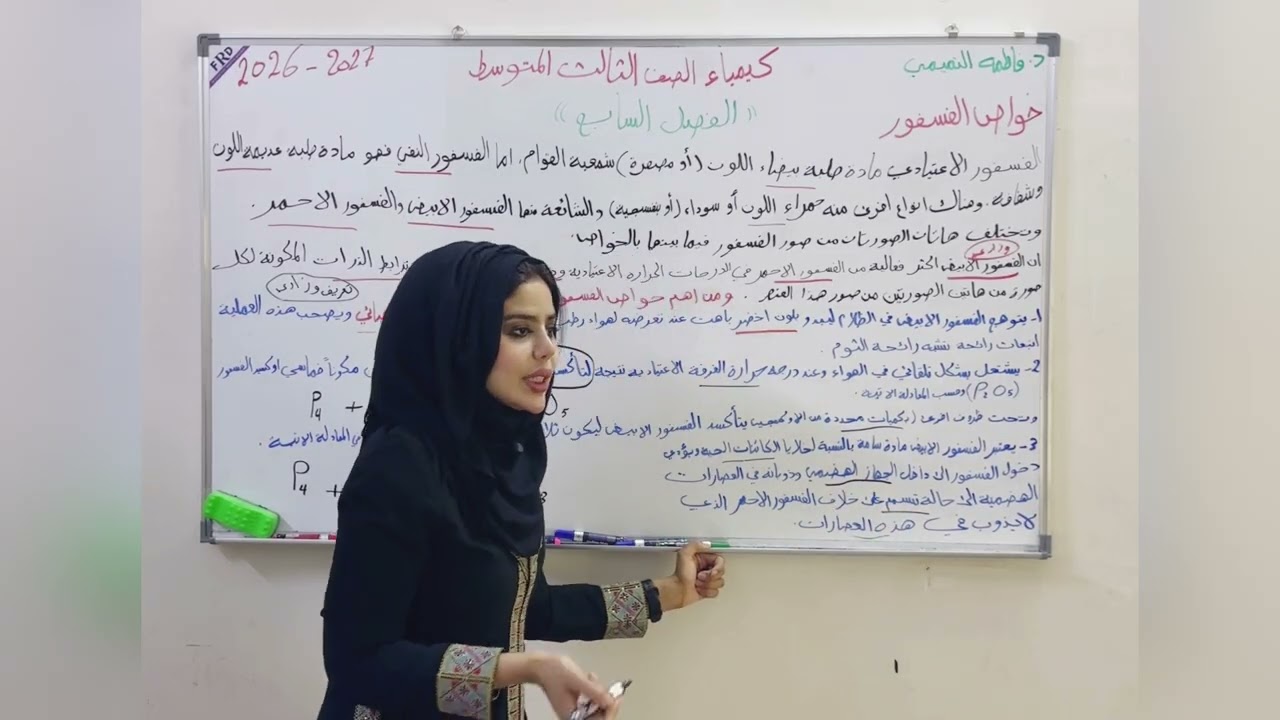 د. فاطمه النعيمي
كيمياء الصف الثالث المتوسط
2026 - 2027
FRD
خواص الفسفور
(( الفصل السابع ))
الفسفور الاعتيادي مادة صلبة بيضاء اللون (أو مصفرة) شمعية القوام، اما الفسفور النقي فهو مادة صلبة عديمة اللون
وشفافة. وهناك انواع اخرى منه حمراء اللون أو سوداء (أو بنفسجية) والشائعة منها الفسفور الابيض والفسفور الاحمر.
وتختلف هاتان الصورتان من صور الفسفور فيما بينهما بالخواص.
وزاري
ان الفسفور الابيض اكثر فعالية من الفسفور الاحمر في الدرجات الحرارة الاعتيادية ترابط الذرات المكونة لكل
صورة من هاتين الصورتين من صور هذا العنصر. ومن اهم خواص الفسفور
تعريف وزاري
1- يتوهج الفسفور الابيض في الظلام ليبدو بلون اخضر باهت عند تعرضه لهواء رطب ويصحب هذه العملية
انبعاث رائحة تشبه رائحة الثوم.
2- يشتعل بشكل تلقائي في الهواء وعند درجة حرارة الغرفة الاعتيادية نتيجة لتأكسد مكوناً خماسي اوكسيد الفسفور
(P₂O₅) وحسب المعادلة الاتية.
P₄ + O₅
وتحت ظروف اخرى (كميات محددة من الاوكسجين يتأكسد الفسفور الابيض ليكون ثلا في المعادلة الاتية.
3- يعتبر الفسفور الابيض مادة سامة بالنسبة لخلايا الكائنات الحية ويؤدي
P₄ + 3
دخول الفسفور الا داخل الجهاز الهضمي وذوبانه في العصارات
الهضمية الى حالة تسمم على خلاف الفسفور الاحمر الذي
لا يذوب في هذه العصارات.